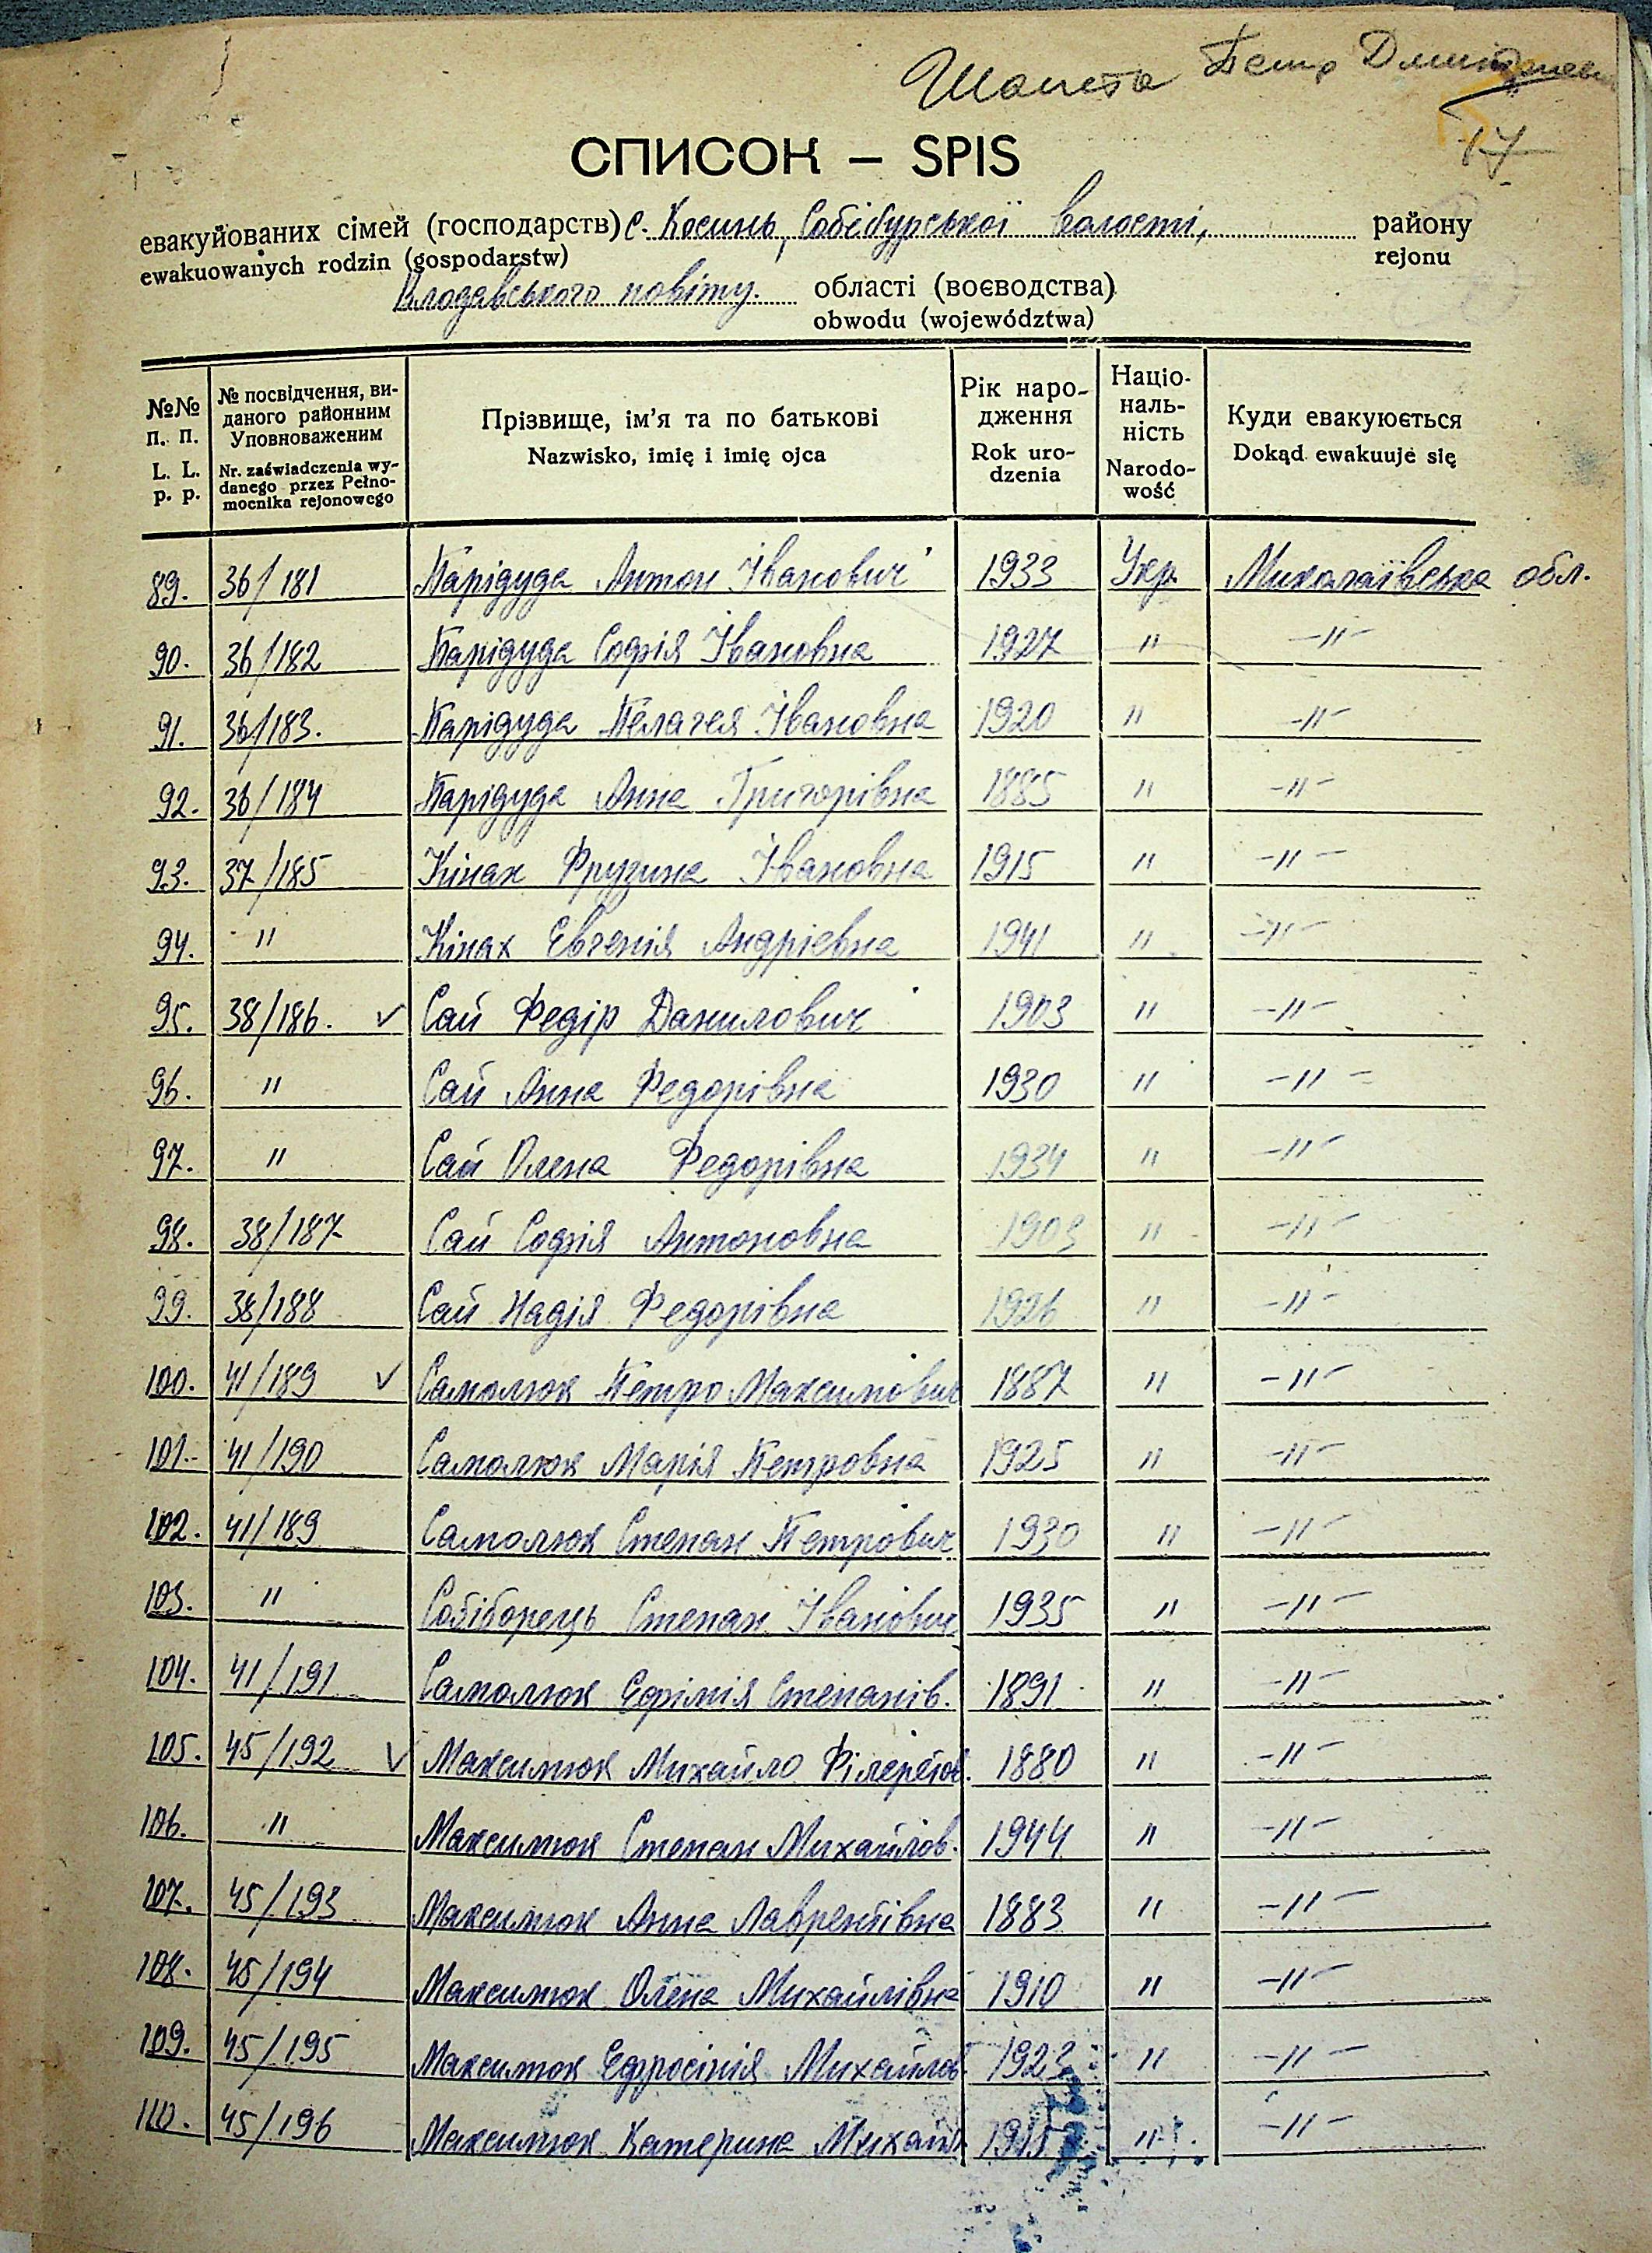 Шопета Петр
17
СПИСОК – SPIS
евакуйованих сімей (господарств) с. Косинь, Собібурської волості, району
ewakuowanych rodzin (gospodarstw) rejonu
Влодавського повіту. області (воєводства)
obwodu (województwa)
№№ п. п. L. L. p. p. | № посвідчення, виданого районним Уповноваженим Nr. zaświadczenia wydanego przez Pełnomocnika rejonowego | Прізвище, ім'я та по батькові Nazwisko, imię i imię ojca | Рік народження Rok urodzenia | Національність Narodowość | Куди евакуюється Dokąd ewakuuje się
89. 36/181 Парідуда Антон Іванович 1933 Укр. Миколаївська обл.
90. 36/182 Парідуда Софія Івановна 1927 " -"-
91. 36/183. Парідуда Пелагея Івановна 1920 " -"-
92. 36/184 Парідуда Анна Григорівна 1885 " -"-
93. 37/185 Кінах Фрузина Івановна 1915 " -"-
94. " Кінах Евгенія Андріевна 1941 " -"-
95. 38/186. ✓ Сай Федір Данилович 1903 " -"-
96. " Сай Анна Федорівна 1930 " -"-
97. " Сай Олена Федорівна 1934 " -"-
98. 38/187 Сай Софія Антоновна 1903 " -"-
99. 38/188 Сай Надія Федорівна 1926 " -"-
100. 41/189 ✓ Самолюк Петро Максимович 1887 " -"-
101. 41/190 Самолюк Марія Петровна 1925 " -"-
102. 41/189 Самолюк Степан Петрович 1930 " -"-
103. " Собіборець Степан Іванович 1935 " -"-
104. 41/191 Самолюк Ефімія Степанів. 1891 " -"-
105. 45/192 ✓ Максимюк Михайло 1880 " -"-
106. " Максимюк Степан Михайлов. 1944 " -"-
107. 45/193 Максимюк Анна Лаврентівна 1883 " -"-
108. 45/194 Максимюк Олена Михайлівна 1910 " -"-
109. 45/195 Максимюк Ефросінія Михайлов 1923 " -"-
110. 45/196 Максимюк Катерина Михайл " -"-